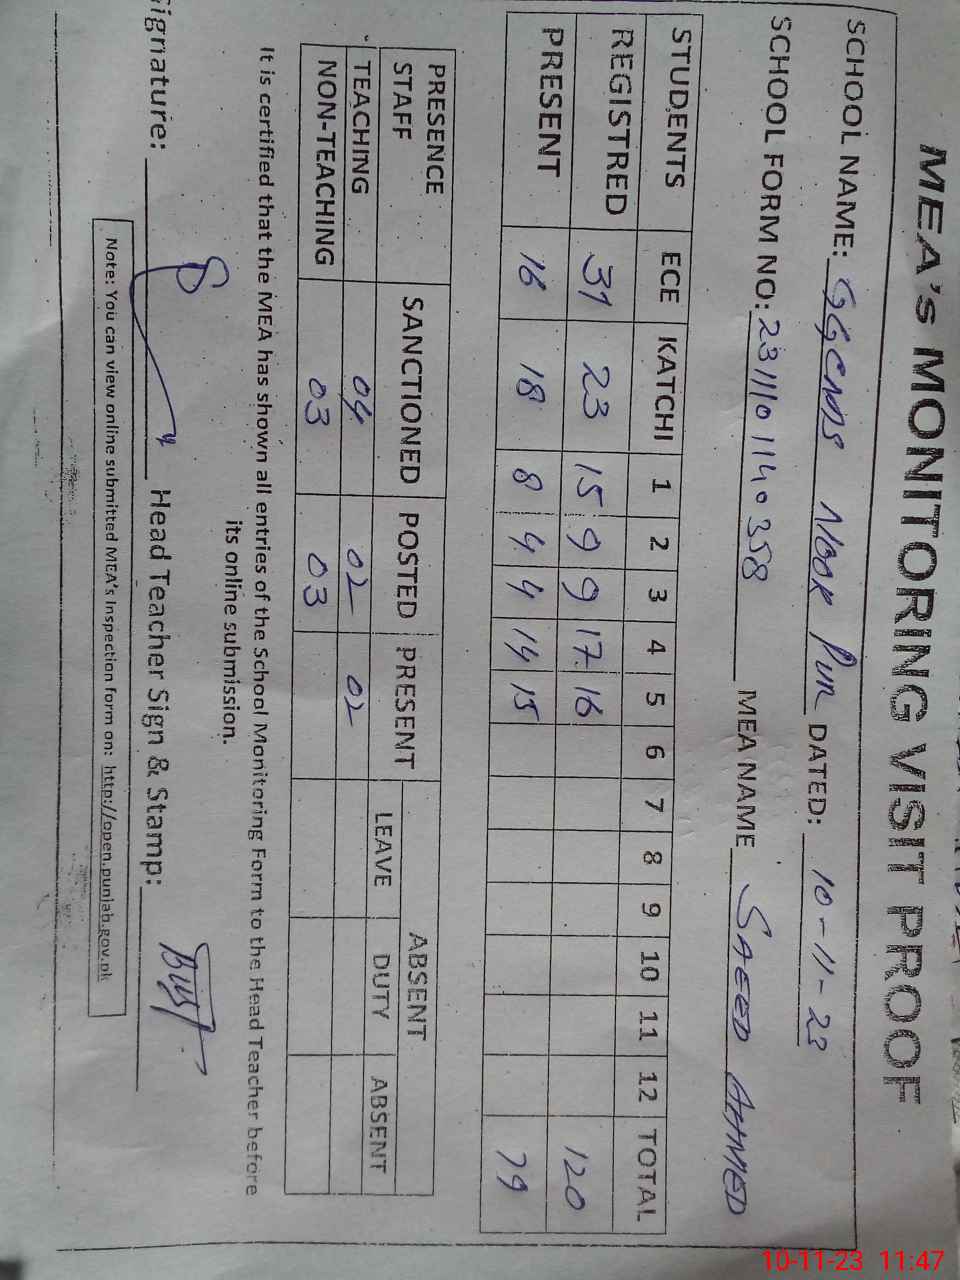 MEA's MONITORING VISIT PROOF
SCHOOL NAME: GGCMS Noor Pur DATED: 10-11-23
SCHOOL FORM NO: 23111101140358 MEA NAME SAEED AHMED
STUDENTS ECE KATCHI 1 2 3 4 5 6 7 8 9 10 11 12 TOTAL
REGISTRED 31 23 15 9 9 17 16 120
PRESENT 16 18 8 4 4 14 15 79
PRESENCE STAFF SANCTIONED POSTED PRESENT ABSENT
LEAVE DUTY ABSENT
TEACHING 04 02 02
NON-TEACHING 03 03
It is certified that the MEA has shown all entries of the School Monitoring Form to the Head Teacher before
its online submission.
Signature: Head Teacher Sign & Stamp:
Note: You can view online submitted MEA's Inspection form on: http://open.punjab.gov.pk
10-11-23 11:47